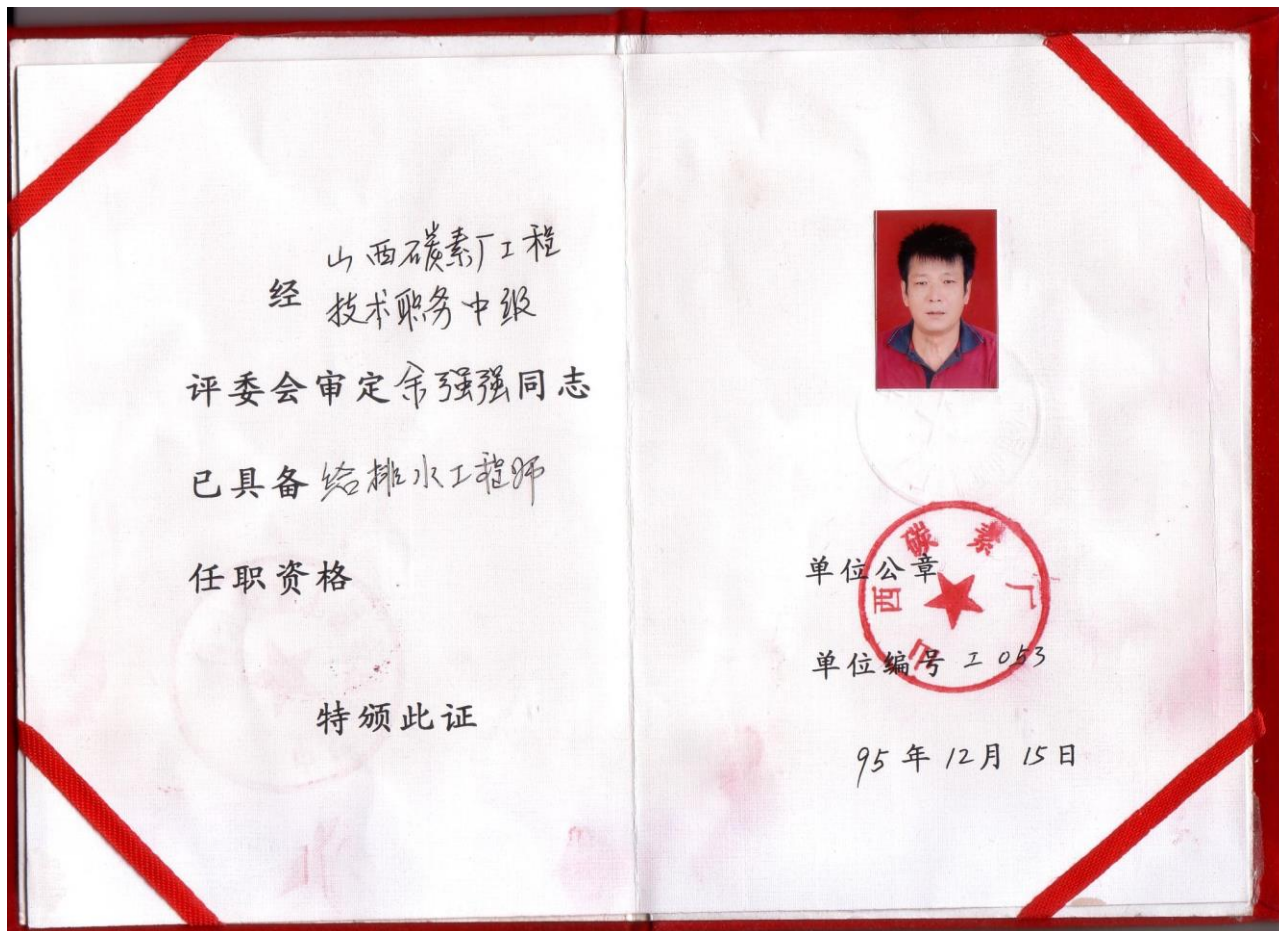 山西碳素厂工程
经 技术职务中级
评委会审定余强强同志
已具备给排水工程师
任职资格
特颁此证
山西碳素厂
单位公章
单位编号 工053
95年12月15日